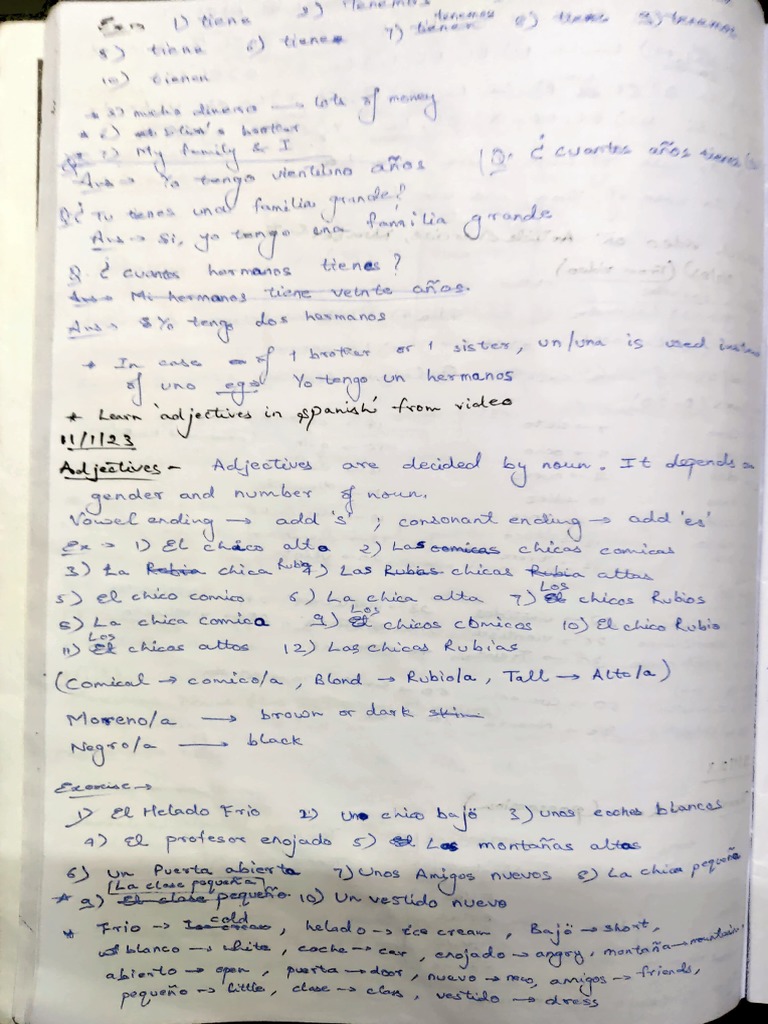 1) tiene 2) Tenemos
5) tiene 6) tiene 7) tienen tenemos 8) tiene 9) tenemos
10) tienen
* 3) mucho dinero → lots of money
* My family & I
Ans → Yo tengo vientiuno años (Q. ¿ cuantos años tienes
Q ¿ Tu tienes una familia grande?
Ans → Si, yo tengo una familia grande
Q ¿ cuantos hermanos tienes ?
Ans → Mi hermanos tiene veinte años.
Ans → Yo tengo dos hermanos
* In case of 1 brother or 1 sister, un/una is used
of uno eg → Yo tengo un hermanos
* Learn 'adjectives in spanish' from video
11/1/23
Adjectives - Adjectives are decided by noun. It depends on
gender and number of noun.
Vowel ending → add 's' ; consonant ending → add 'es'
Ex → 1) El chico alto 2) Las comicas chicas comicas
3) La Rubia chica Rubia 4) Las Rubias chicas Rubia altas
5) El chico comico 6) La chica alta 7) El Los chicos Rubios
8) La chica comica 9) El Los chicos comicos 10) El chico Rubio
11) El Los chicos altos 12) Las chicas Rubias
(Comical → comico/a , Blond → Rubio/a , Tall → Alto/a)
Moreno/a → brown or dark skin
Negro/a → black
Exercise →
1) El Helado Frio 2) Un chico bajo 3) unos coches blancos
4) El profesor enojado 5) Las montañas altas
6) un Puerta abierta 7) Unos Amigos nuevos 8) La chica pequeña
[La clase pequeña]
* 9) El clase pequeño. 10) Un vestido nuevo
* Frio → Ice cream cold , helado → ice cream , Bajo → short ,
blanco → white , coche → car , enojado → angry , montaña → mountain,
abierto → open , puerta → door, nuevo → new, amigos → friends,
pequeño → little, clase → class, vestido → dress